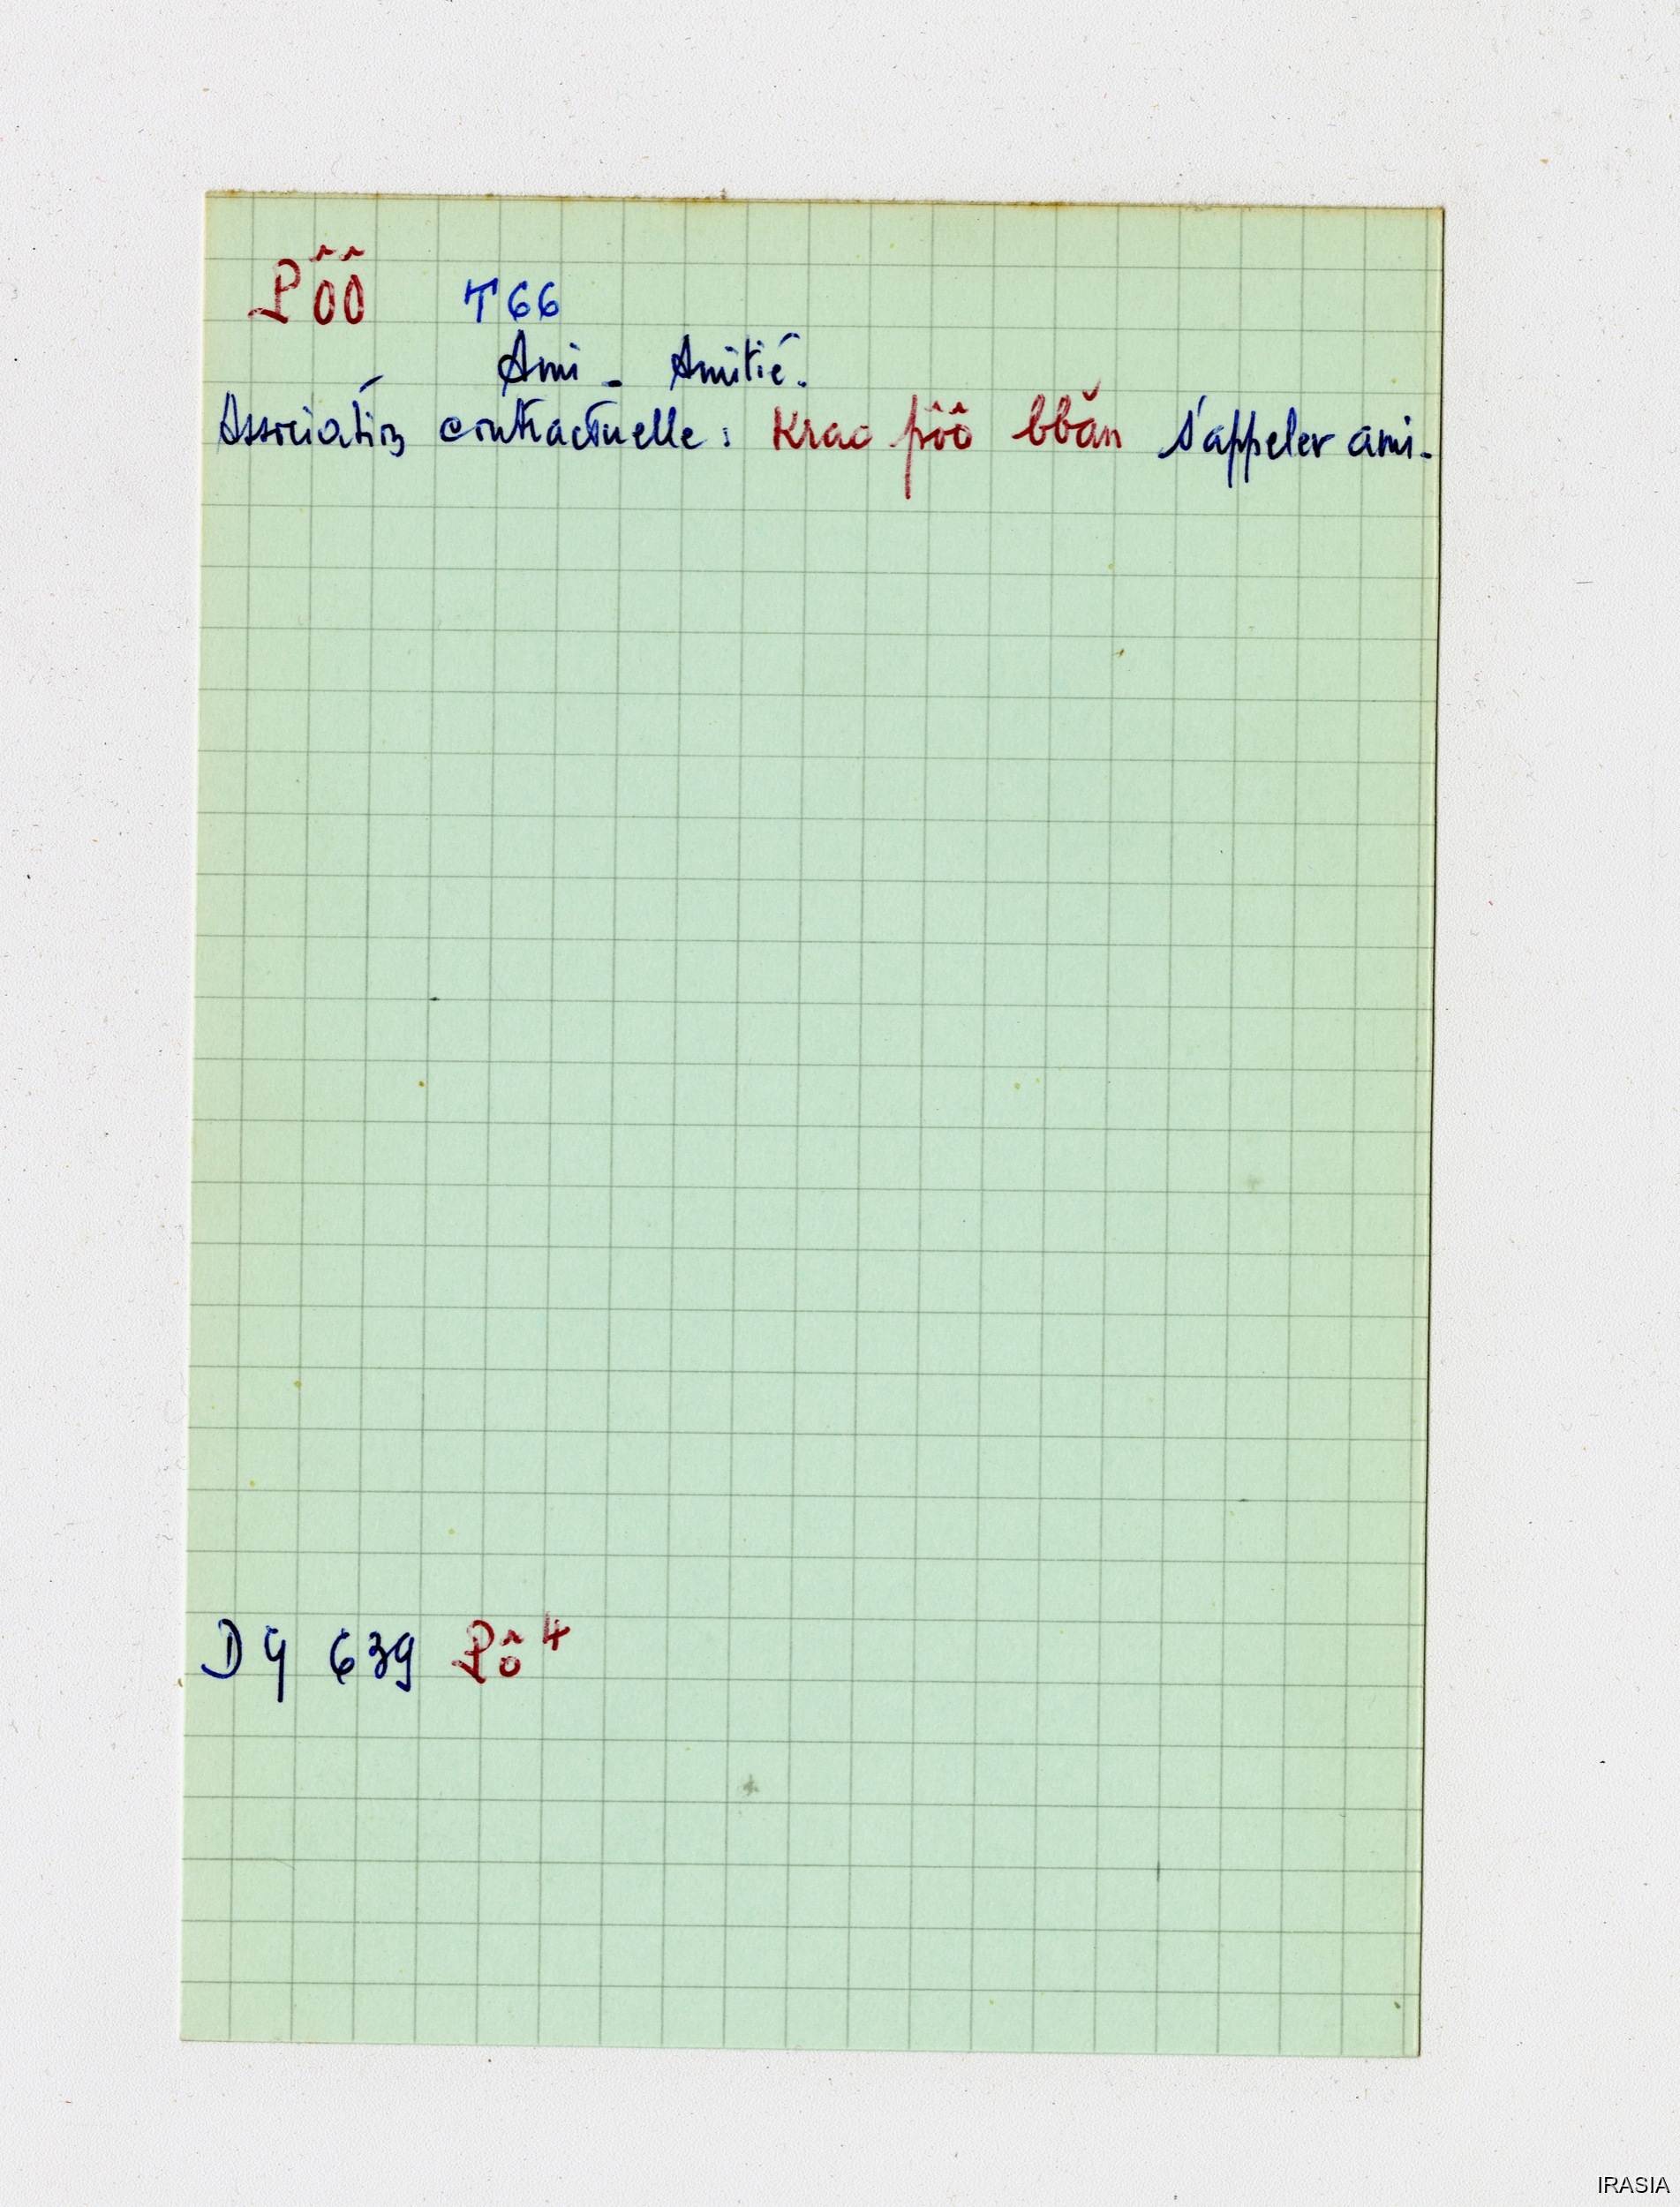 Pôô T66
Ami - Amitié.
Association contractuelle : Krao pôô bbăn s'appeler ami.
D 9 639 Pô⁴
IRASIA